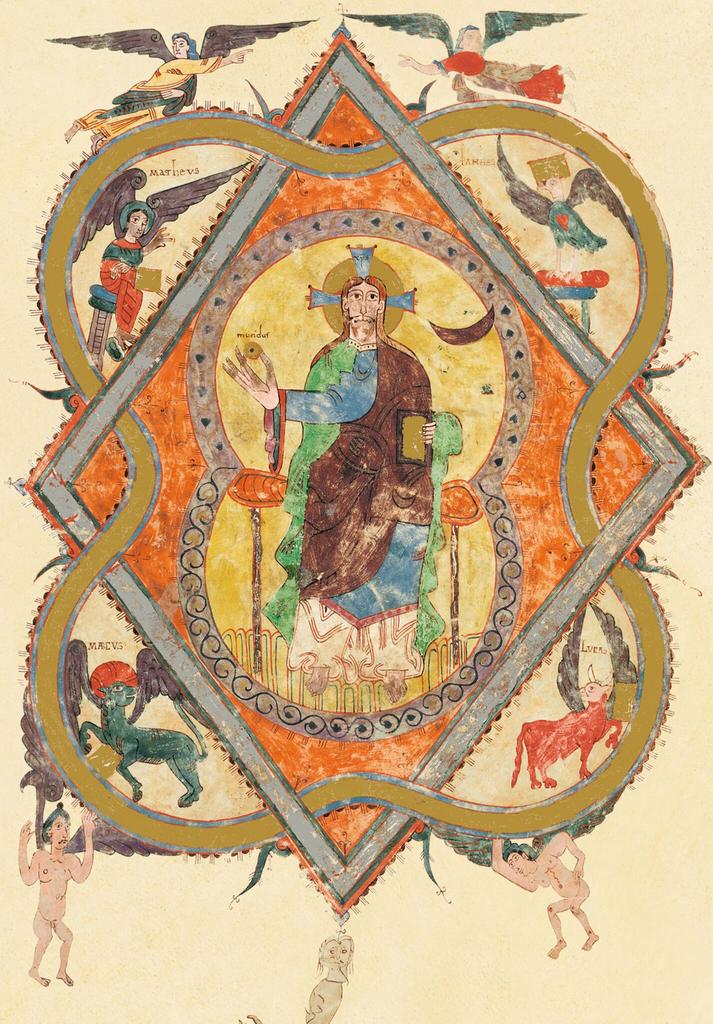 MATHEVS
IOHANNES
mundus
MARCVS
LVCAS